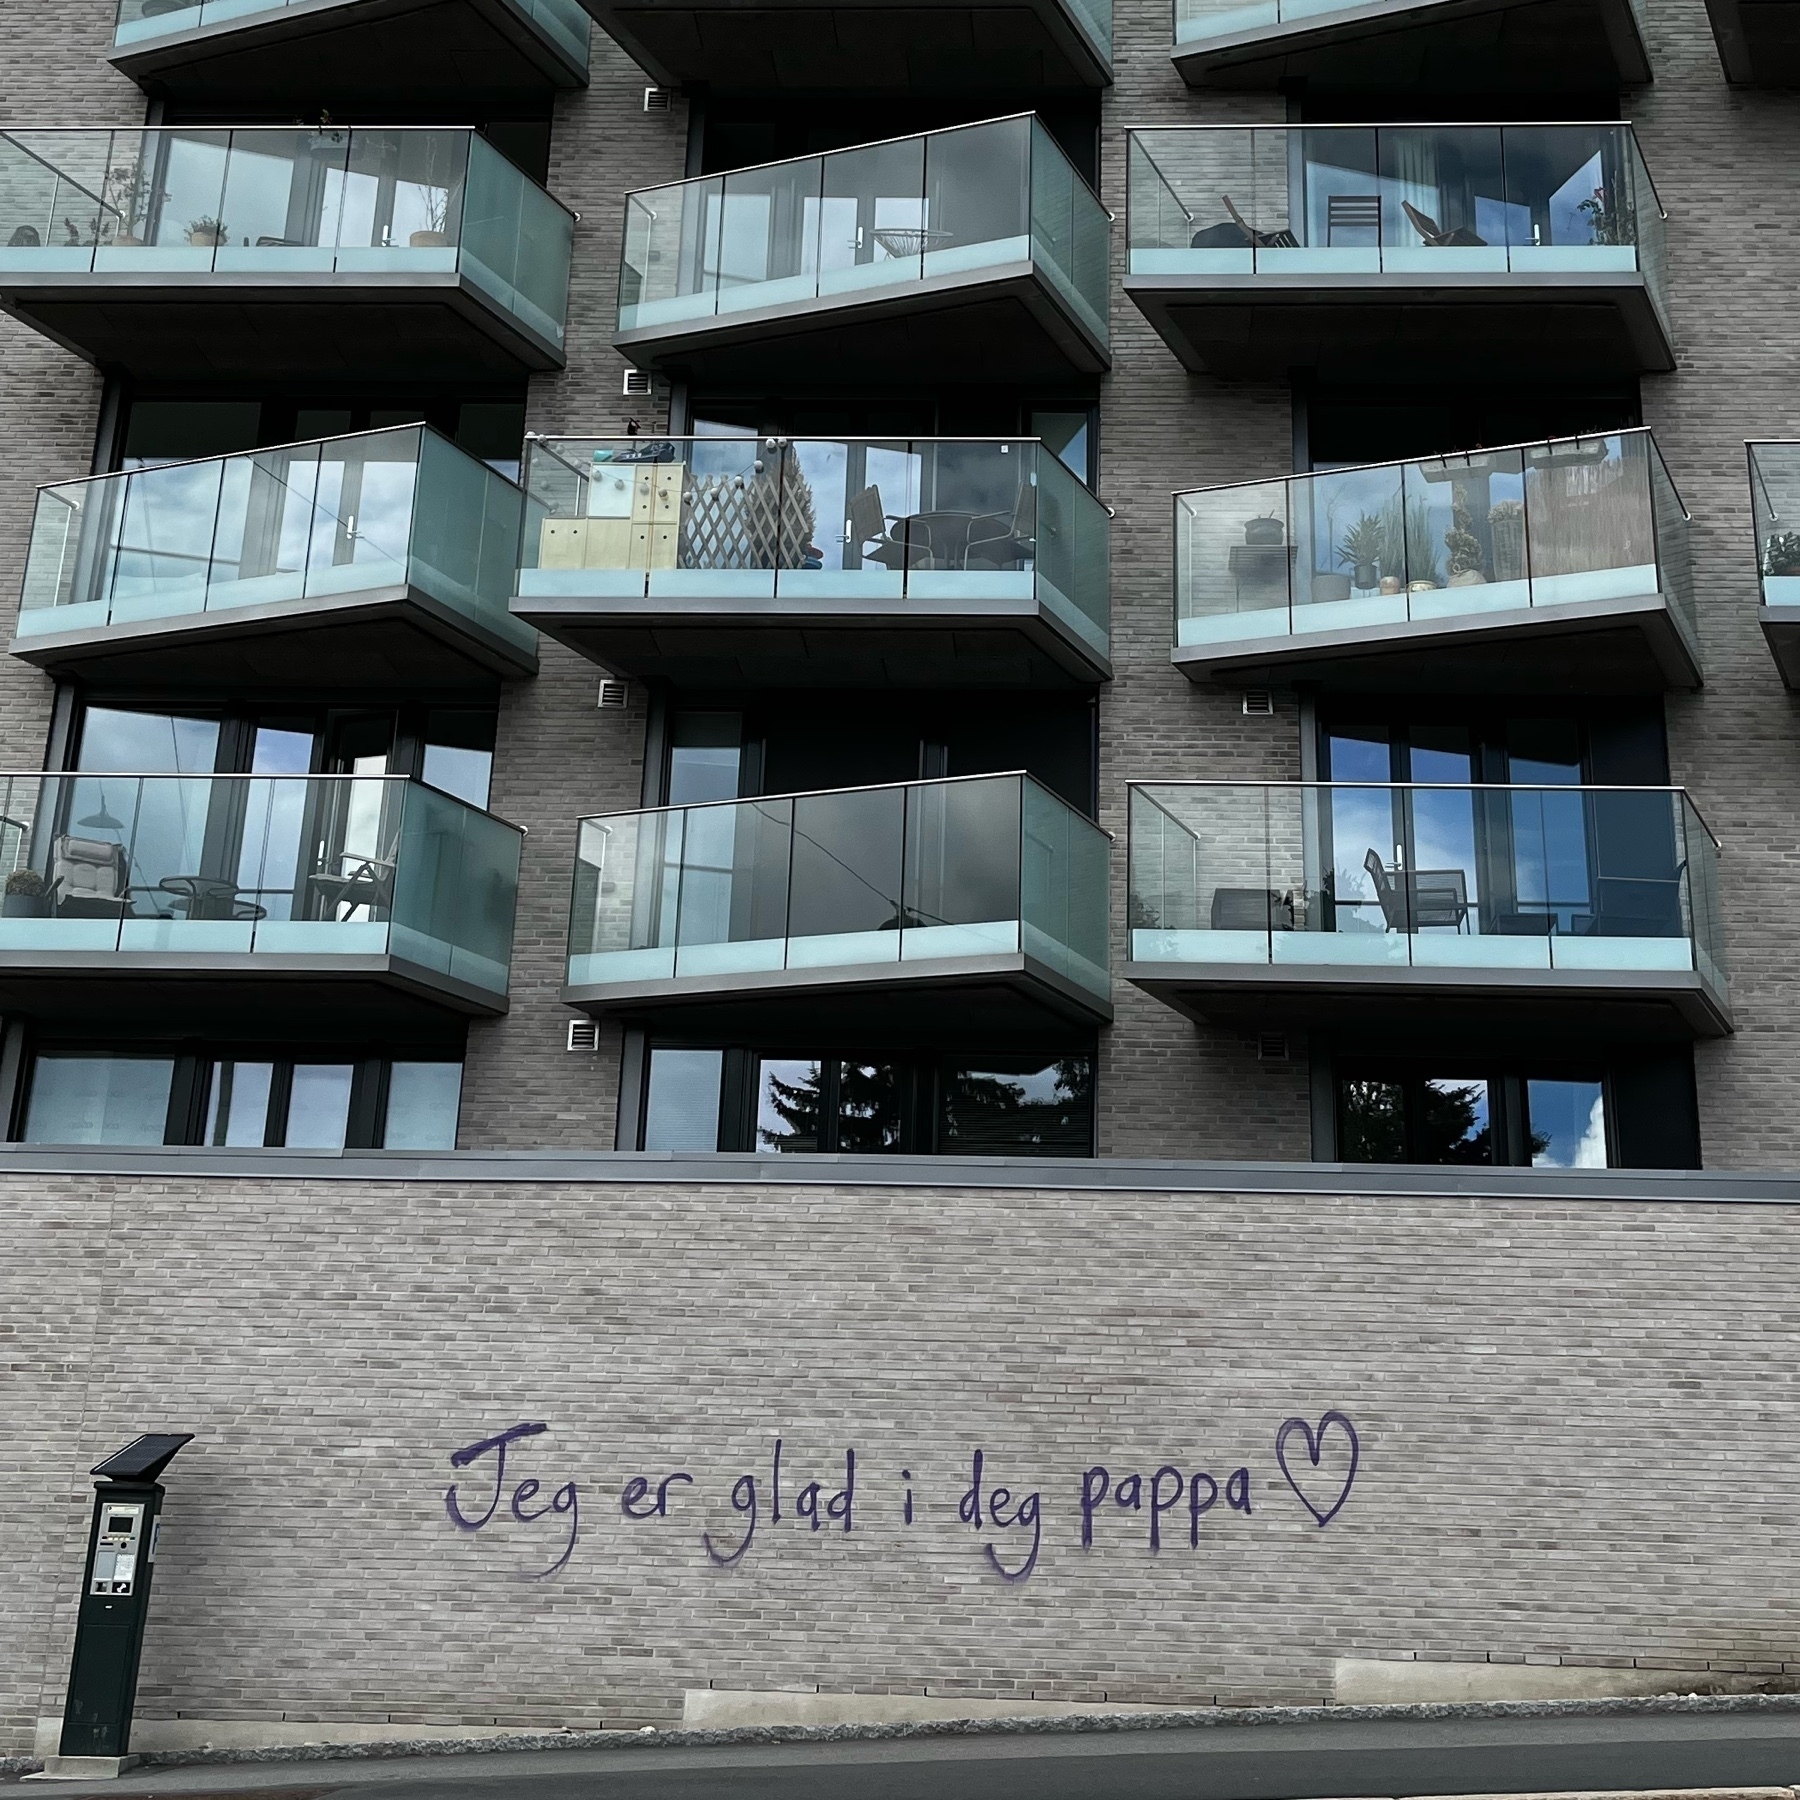 Jeg er glad i deg pappa♡